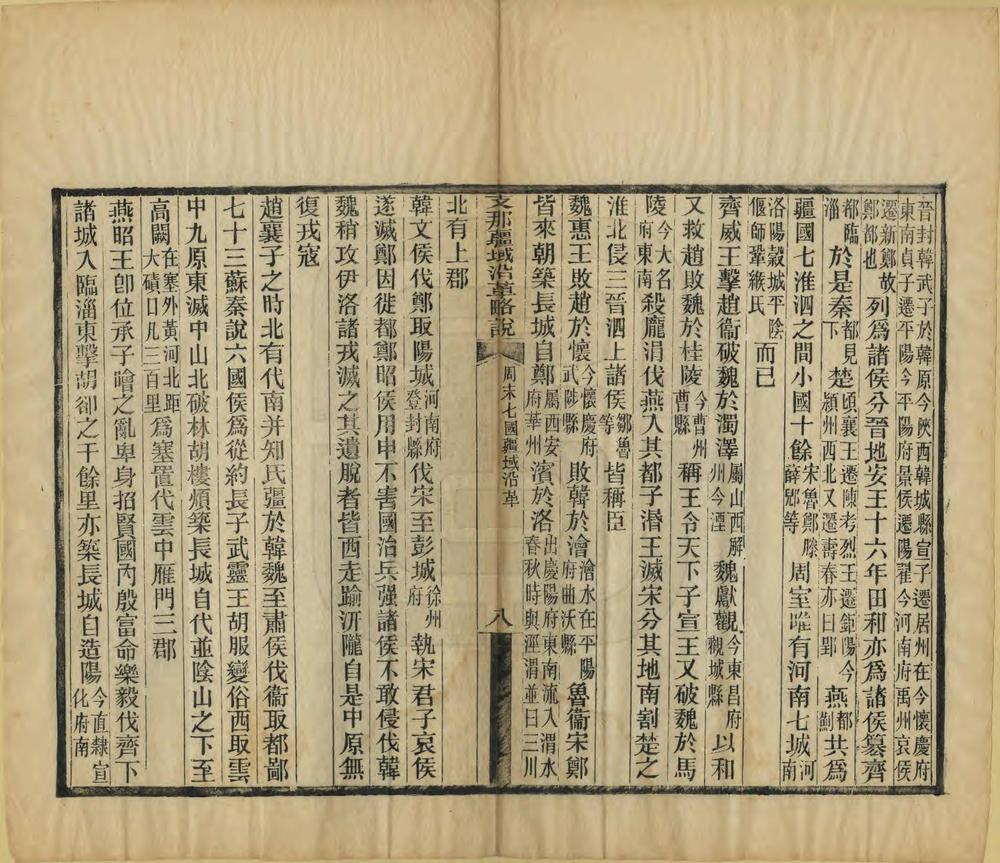 晉封韓武子於韓原今陜西韓城縣宣子遷居州在今懷慶府東南貞子遷平陽今平陽府景侯遷陽翟今河南府禹州哀侯
遷新鄭故鄭都也列爲諸侯分晉地安王十六年田和亦爲諸侯簒齊
都臨淄於是秦都見下楚頃襄王遷陳考烈王遷鉅陽今潁州西北又遷壽春亦曰郢燕都薊共爲
疆國七淮泗之間小國十餘宋魯鄭滕薛郳等周室唯有河南七城河南
洛陽穀城平陰偃師鞏緱氏而已
齊威王擊趙衞破魏於濁澤屬山西解州今湮魏獻觀今東昌府觀城縣以和
又救趙敗魏於桂陵今曹州曹縣稱王令天下子宣王又破魏於馬
陵今大名府東南殺龐涓伐燕入其都子湣王滅宋分其地南割楚之
淮北侵三晉泗上諸侯鄒魯等皆稱臣
魏惠王敗趙於懷今懷慶府武陟縣敗韓於澮澮水在平陽府曲沃縣魯衞宋鄭
皆來朝築長城自鄭屬西安府華州濱於洛出慶陽府東南流入渭水春秋時與涇渭並曰三川
支那疆域沿革略說 周末七國疆域沿革 八
北有上郡
韓文侯伐鄭取陽城河南府登封縣伐宋至彭城徐州府執宋君子哀侯
遂滅鄭因徙都鄭昭侯用申不害國治兵强諸侯不敢侵伐韓
魏稍攻伊洛諸戎滅之其遺脫者皆西走踰汧隴自是中原無
復戎寇
趙襄子之時北有代南并知氏彊於韓魏至肅侯伐衞取都鄙
七十三蘇秦說六國侯爲從約長子武靈王胡服變俗西取雲
中九原東滅中山北破林胡樓煩築長城自代並陰山之下至
高闕在塞外黃河北距大磧口凡三百里爲塞置代雲中雁門三郡
燕昭王卽位承子噲之亂卑身招賢國內殷富命樂毅伐齊下
諸城入臨淄東擊胡卻之千餘里亦築長城自造陽今直隸宣化府南